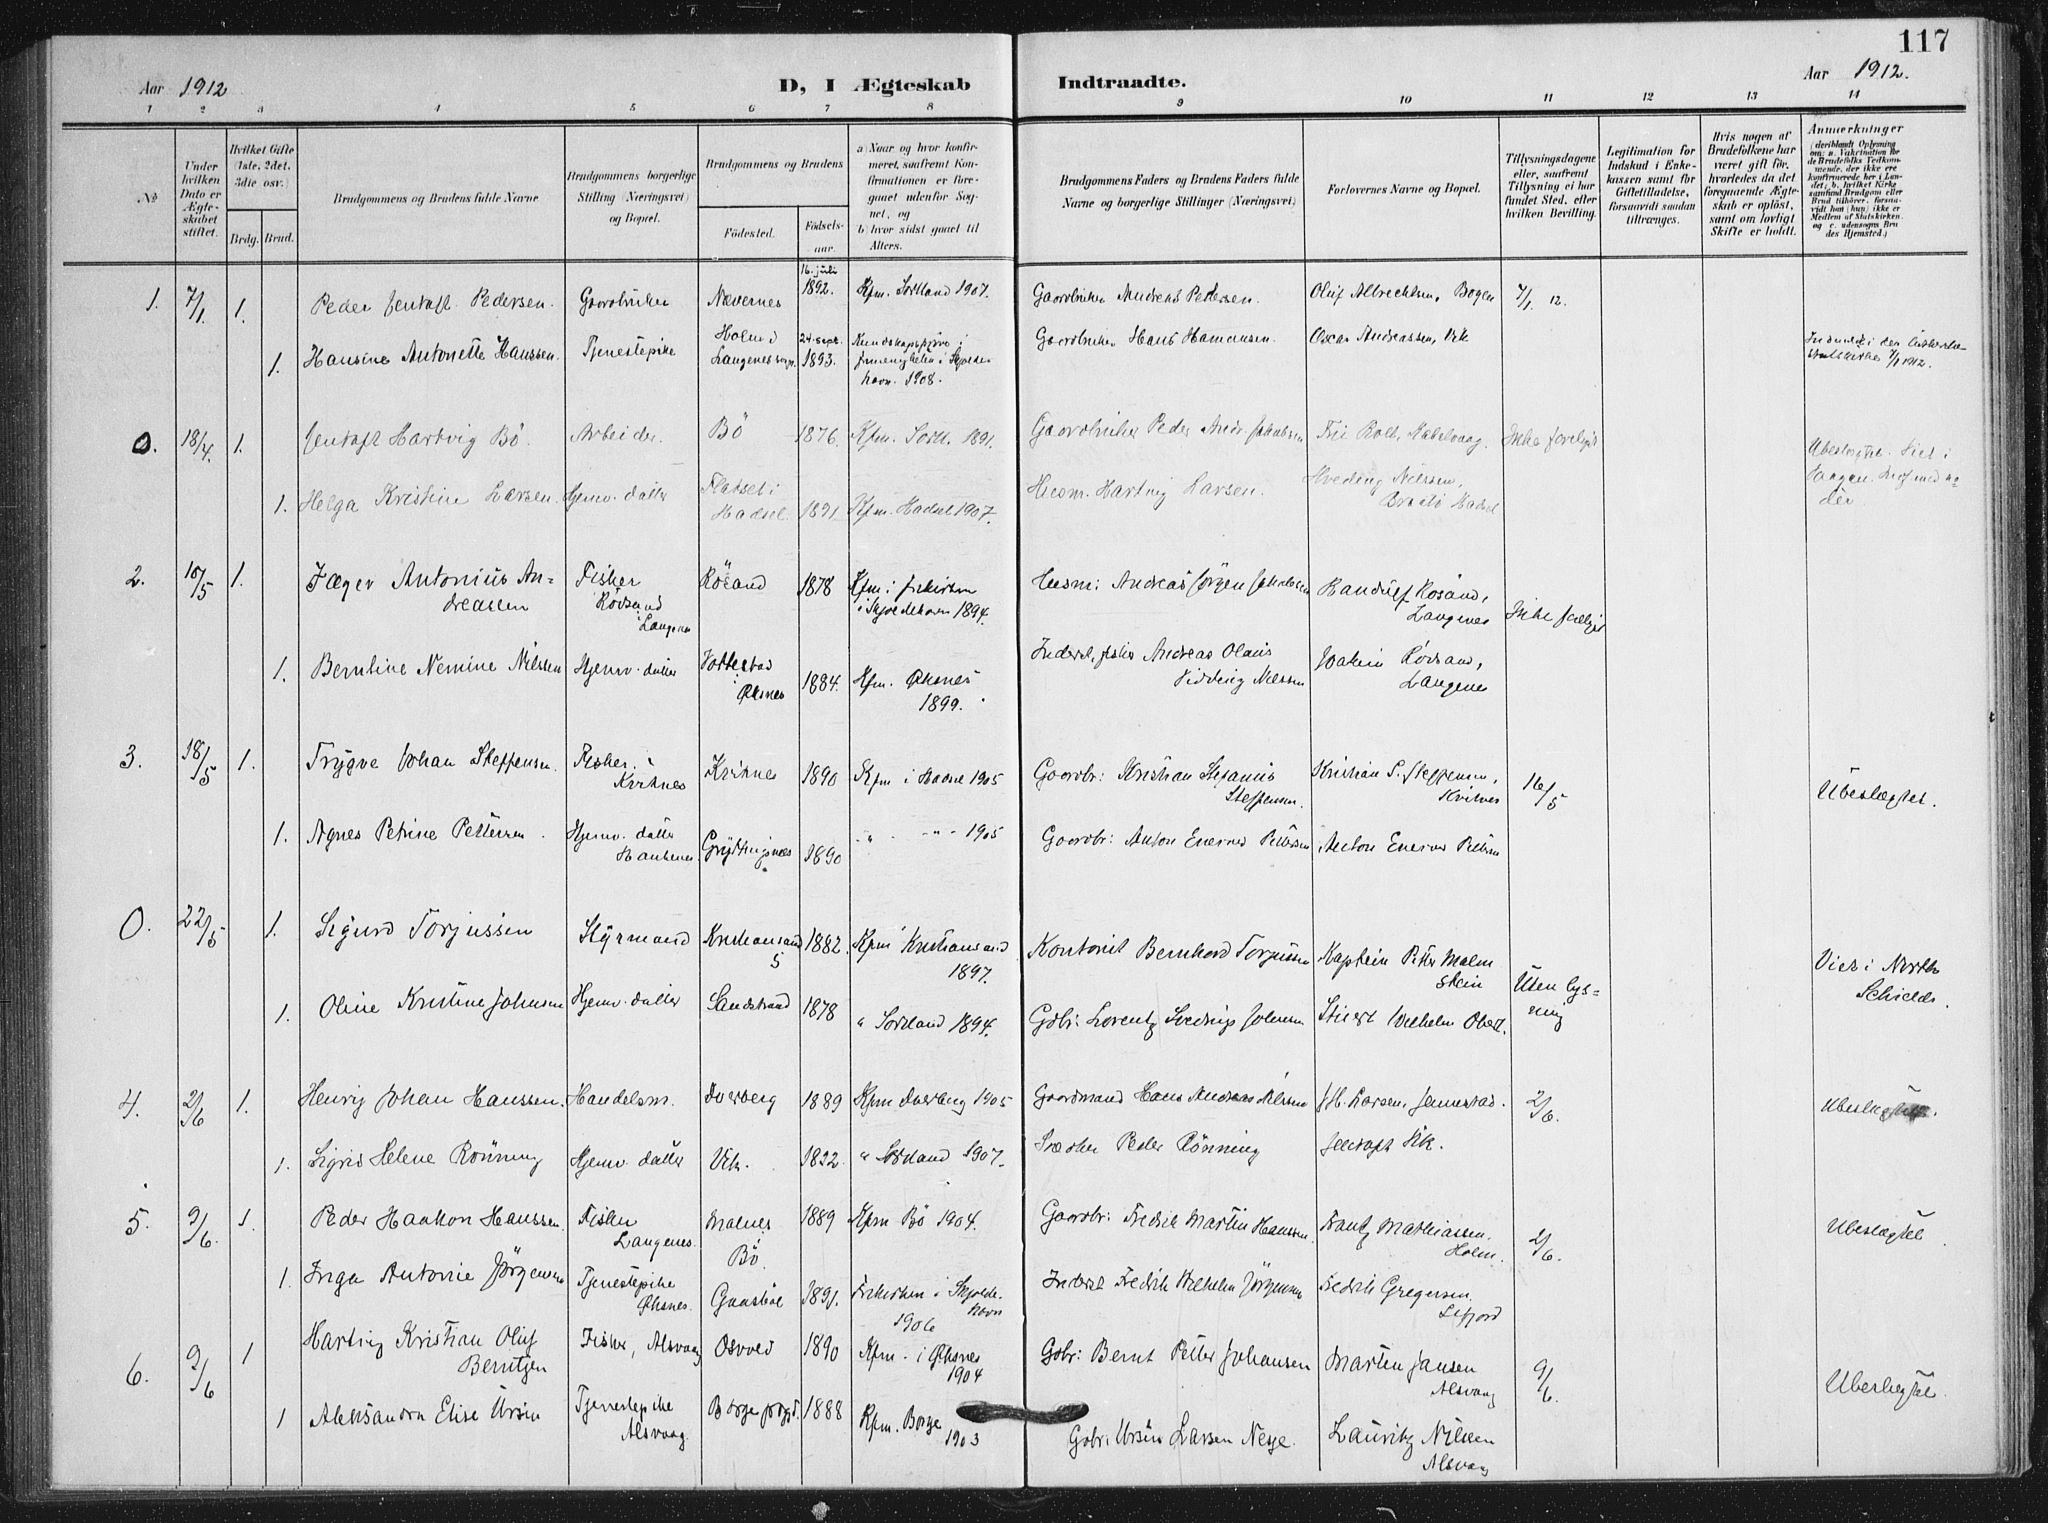 117
Aar 1912
D, I Ægteskab Indtraadte.
Aar 1912.
1 2 3 4 5 6 7 8 9 10 11 12 13 14
№
Under hvilken Dato er Ægteskabet stiftet.
Hvilket Gifte (1ste, 2det, 3die osv.)
Brdg. Brud.
Brudgommens og Brudens fulde Navne
Brudgommens borgerlige Stilling (Næringsvei) og Bopæl.
Brudgommens og Brudens
Fødested.
Fødselsaar.
a) Naar og hvor konfirmeret, saafremt Konfirmationen er foregaaet udenfor Sognet, og
b) hvor sidst gaaet til Alters.
Brudgommens Faders og Brudens Faders fulde Navne og borgerlige Stillinger (Næringsvei)
Forlovernes Navne og Bopæl.
Tillysningsdagene eller, saafremt Tillysning ei har fundet Sted, efter hvilken Bevilling.
Legitimation for Indskud i Enkekassen samt for Giftetilladelse, forsaavidt saadan tiltrænges.
Hvis nogen af Brudefolkene har været gift før, hvorledes da det foregaaende Ægteskab er opløst, samt om lovligt Skifte er holdt.
Anmerkninger
(deriblandt Oplysning om: a. Vakcination for de Brudefolks Vedkommende, der ikke ere konfirmerede her i Landet; b. hvilket Kirkesamfund Brudgom eller Brud tilhører, forsaavidt han (hun) ikke er Medlem af Statskirken, og c. udensogns Brudes Hjemsted.)
1. 7/1. 1. Peder Jentoft Pedersen. Gaardbruker Nævernes 16. juli 1892. Kfm. Sortland 1907. Gaardbruker Andreas Pedersen. Oluf Albrechtsen, Bogen 7/1 12.
1. Hansine Antonette Hanssen. Tjenestepike Holm i Langenes sogn. 24. sept. 1893. Kundskapsprøve i frimenigheten i Skjoldehavn. 1908. Gaardbruker Hans Hansen. Oscar Andreassen, Vik
0. 18/4. 1. Jentoft Hartvig Bö Arbeider. Bö 1876. Kfm. Sortl. 1891. Gaardbruker Peder Andr. Jakobsen Ikke forelyst Ubeslegtet. Viet i
1. Helga Kristine Larsen. Hjemv. datter Flatset i Hadsel. 1891 Kfm. Hadsel 1907. Husm. Hartvig Larsen. Hveding Nilssen, Hadsel
2. 18/5 1. Jæger Antonius Andreassen Fisker Rösand Langenes Rösand 1878 Kfm. i frikirken i Skjoldehavn 1894. Husm: Andreas Jörgen Jakobsen Randulf Rosand, Langenes Ikke forlyst
1. Berntine Nemine Nilssen Hjemv. datter Tottestad Øksnes 1884. Kfm. Øksnes 1899. Inderst, fisker Andreas Olaus Nilssen Joakim Rösand, Langenes
3. 18/5 1. Trygve Johan Steffensen. Fisher. Kvitnes Kvitnes 1890 Kfm i Hadsel 1905 Gaardbr: Kristian Stefanus Steffensen. Kristian S. Steffensen, Kvitnes 16/5 Ubeslegtet.
1. Agnes Petrine Pettersen. Hjemv. datter Haukenes. Gryttingsnes 1890 " - "- 1905 Gaardbr: Anton Enevar Pettersen Anton Enevar Pettersen
0. 22/5 1. Sigurd Torjussen Styrmand Kristiansand S 1882. Kfm Kristiansand 1897. Kontorist Bernhard Torjussen Kaptein Petter Malmstein Uten lysning Viet i North Schields.
1. Oline Kristine Johnsen Hjemv. datter Sandstrand 1878 " Sortland 1894. Gbr: Lorentz Hvedings Johnsen Stuert Wilhelm Obert.
4. 2/6 1. Henrig Johan Hanssen. Handelsm. Dverberg 1889 Kfm Dverberg 1905 Gaardmand Hans Andreas Nilssen J. H. Larsen, Jennestad. 2/6. Ubeslegtet.
1. Sigrid Helene Rönning Hjemv. datter Vik. 1892. " Sortland 1907. Peder Rönning Jentoft Vik.
5. 9/6. 1. Peder Haakon Hanssen. Fisker Langenes. Malnes Bö. 1889 Kfm Bö 1904. Gaardbr: Fredrik Martin Hanssen. Frantz Mathiassen. Holm. 2/6. Ubeslegtet
1. Inga Antonie Jörgensen Tjenestepike Øksnes. Gaasböl 1891. Frikirken i Skjoldehavn 1906 Inderst Fredrik Wilhelm Jörgensen Fedrik Gregersen. Lifjord
6. 9/6 1 Hartvig Kristian Oluf Berntzen Fisker, Alsvaag Osvold 1890 Kfm. i Øksnes 1904 Gbr: Bernt Petter Johansen Martin Jansen Alsvaag 9/6. Ubeslegtet.
1 Aleksandra Elise Ursin Tjenestepike Alsvaag. Borge prgd. 1888 Kfm. Borge 1903 Gbr: Ursin Larsen Nesje. Lauritz Nilsen Alsvaag